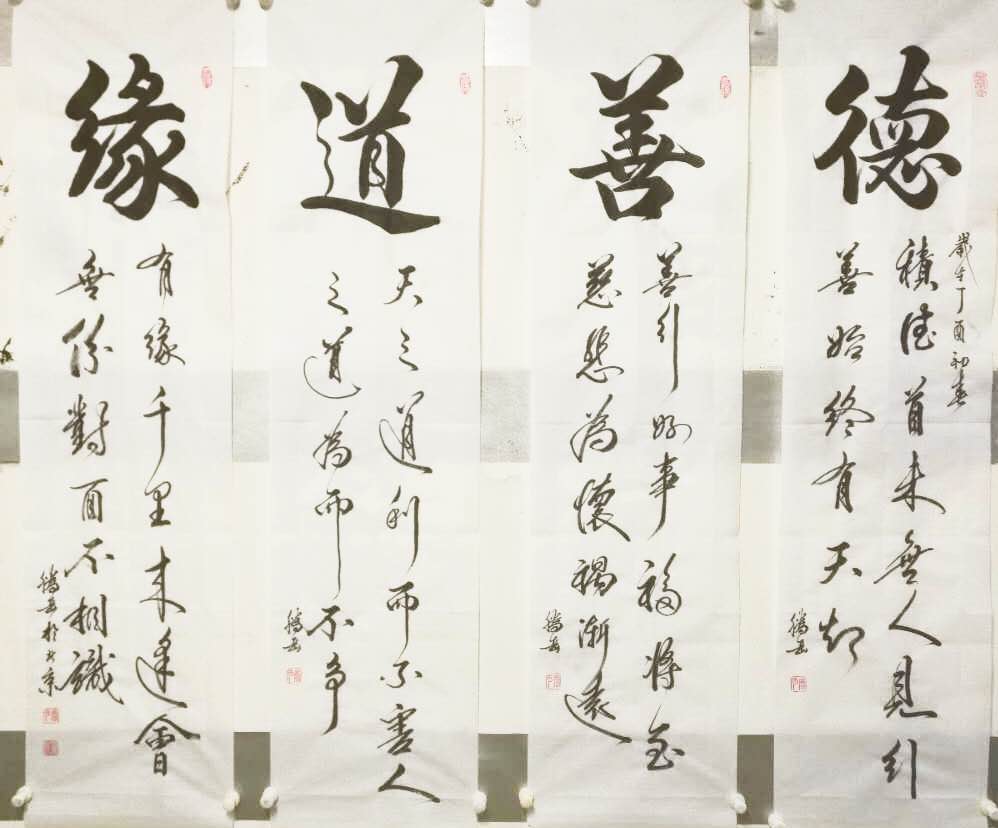 德
歲在丁酉初春
積德首末無人見行
善始終有天知
善
善行好事福將至
慈悲為懷禍漸遠
道
天之道利而不害人
之道為而不争
緣
有緣千里來逢會
無份對面不相識
於北京